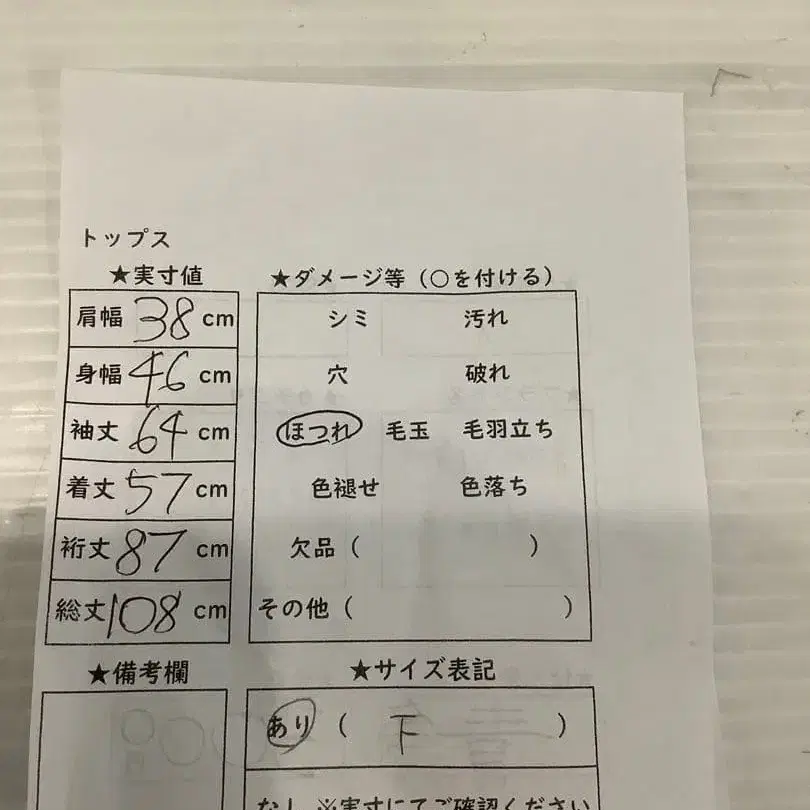 トップス
★実寸値
肩幅 38 cm
身幅 46 cm
袖丈 64 cm
着丈 57 cm
裄丈 87 cm
総丈 108 cm
★ダメージ等（○を付ける）
シミ 汚れ
穴 破れ
ほつれ 毛玉 毛羽立ち
色褪せ 色落ち
欠品（ ）
その他（ ）
★備考欄
★サイズ表記
あり（ 下 ）
なし ※実寸にてご確認ください